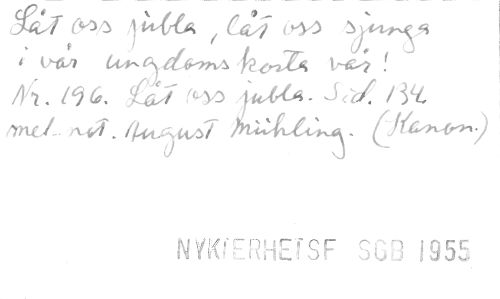 Låt oss jubla, låt oss sjunga
i vår ungdoms korta vår!
Nr. 196. Låt oss jubla. Sid. 134
mel. not. August Mühling. (Kanon.)
NYKTERHETSF SGB 1955